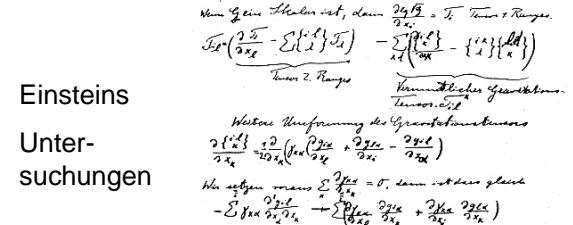 Einsteins
Unter-
suchungen
Wenn G ein Skalar ist, dann ∂lg√G/∂x_i = T_i Tensor 1. Ranges.
T_il = (∂T_i/∂x_l − Σ{il λ}T_λ) − Σ_κλ(∂{il κ}/∂x_κ − {iκ λ}{lλ κ})
Tensor 2. Ranges
Vermutlicher Gravitations-
tensor T_il^x
Weitere Umformung des Gravitationstensors
∂{il κ}/∂x_κ = 1/2 ∂/∂x_κ (γ_κα(∂g_iα/∂x_l + ∂g_lα/∂x_i − ∂g_il/∂x_α))
Wir setzen voraus Σ_κ ∂γ_κα/∂x_κ = 0, dann ist dies gleich
− Σ γ_κα ∂²g_il/∂x_α∂x_κ + Σ(∂γ_κα/∂x_l ∂g_iα/∂x_κ + ∂γ_κα/∂x_i ∂g_lα/∂x_κ)